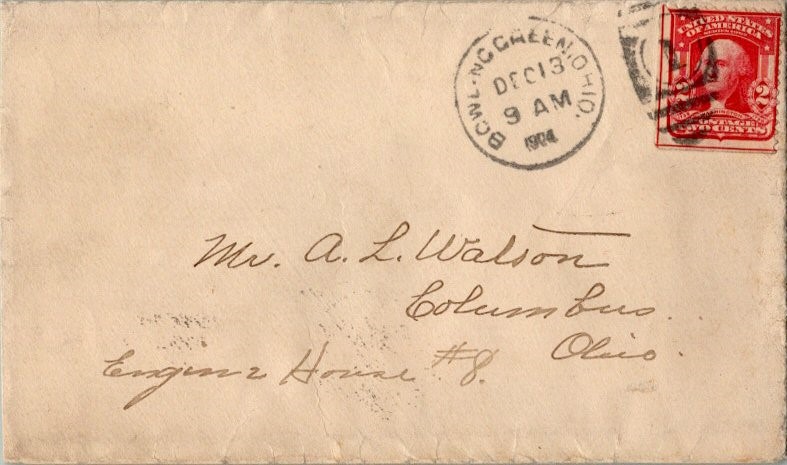 BOWLING GREEN, OHIO.
DEC 13
9 AM
1904
1
UNITED STATES
OF AMERICA
SERIES 1902
2 2
POSTAGE
TWO CENTS
Mr. A. L. Watson
Columbus
Ohio.
Engine House #8.